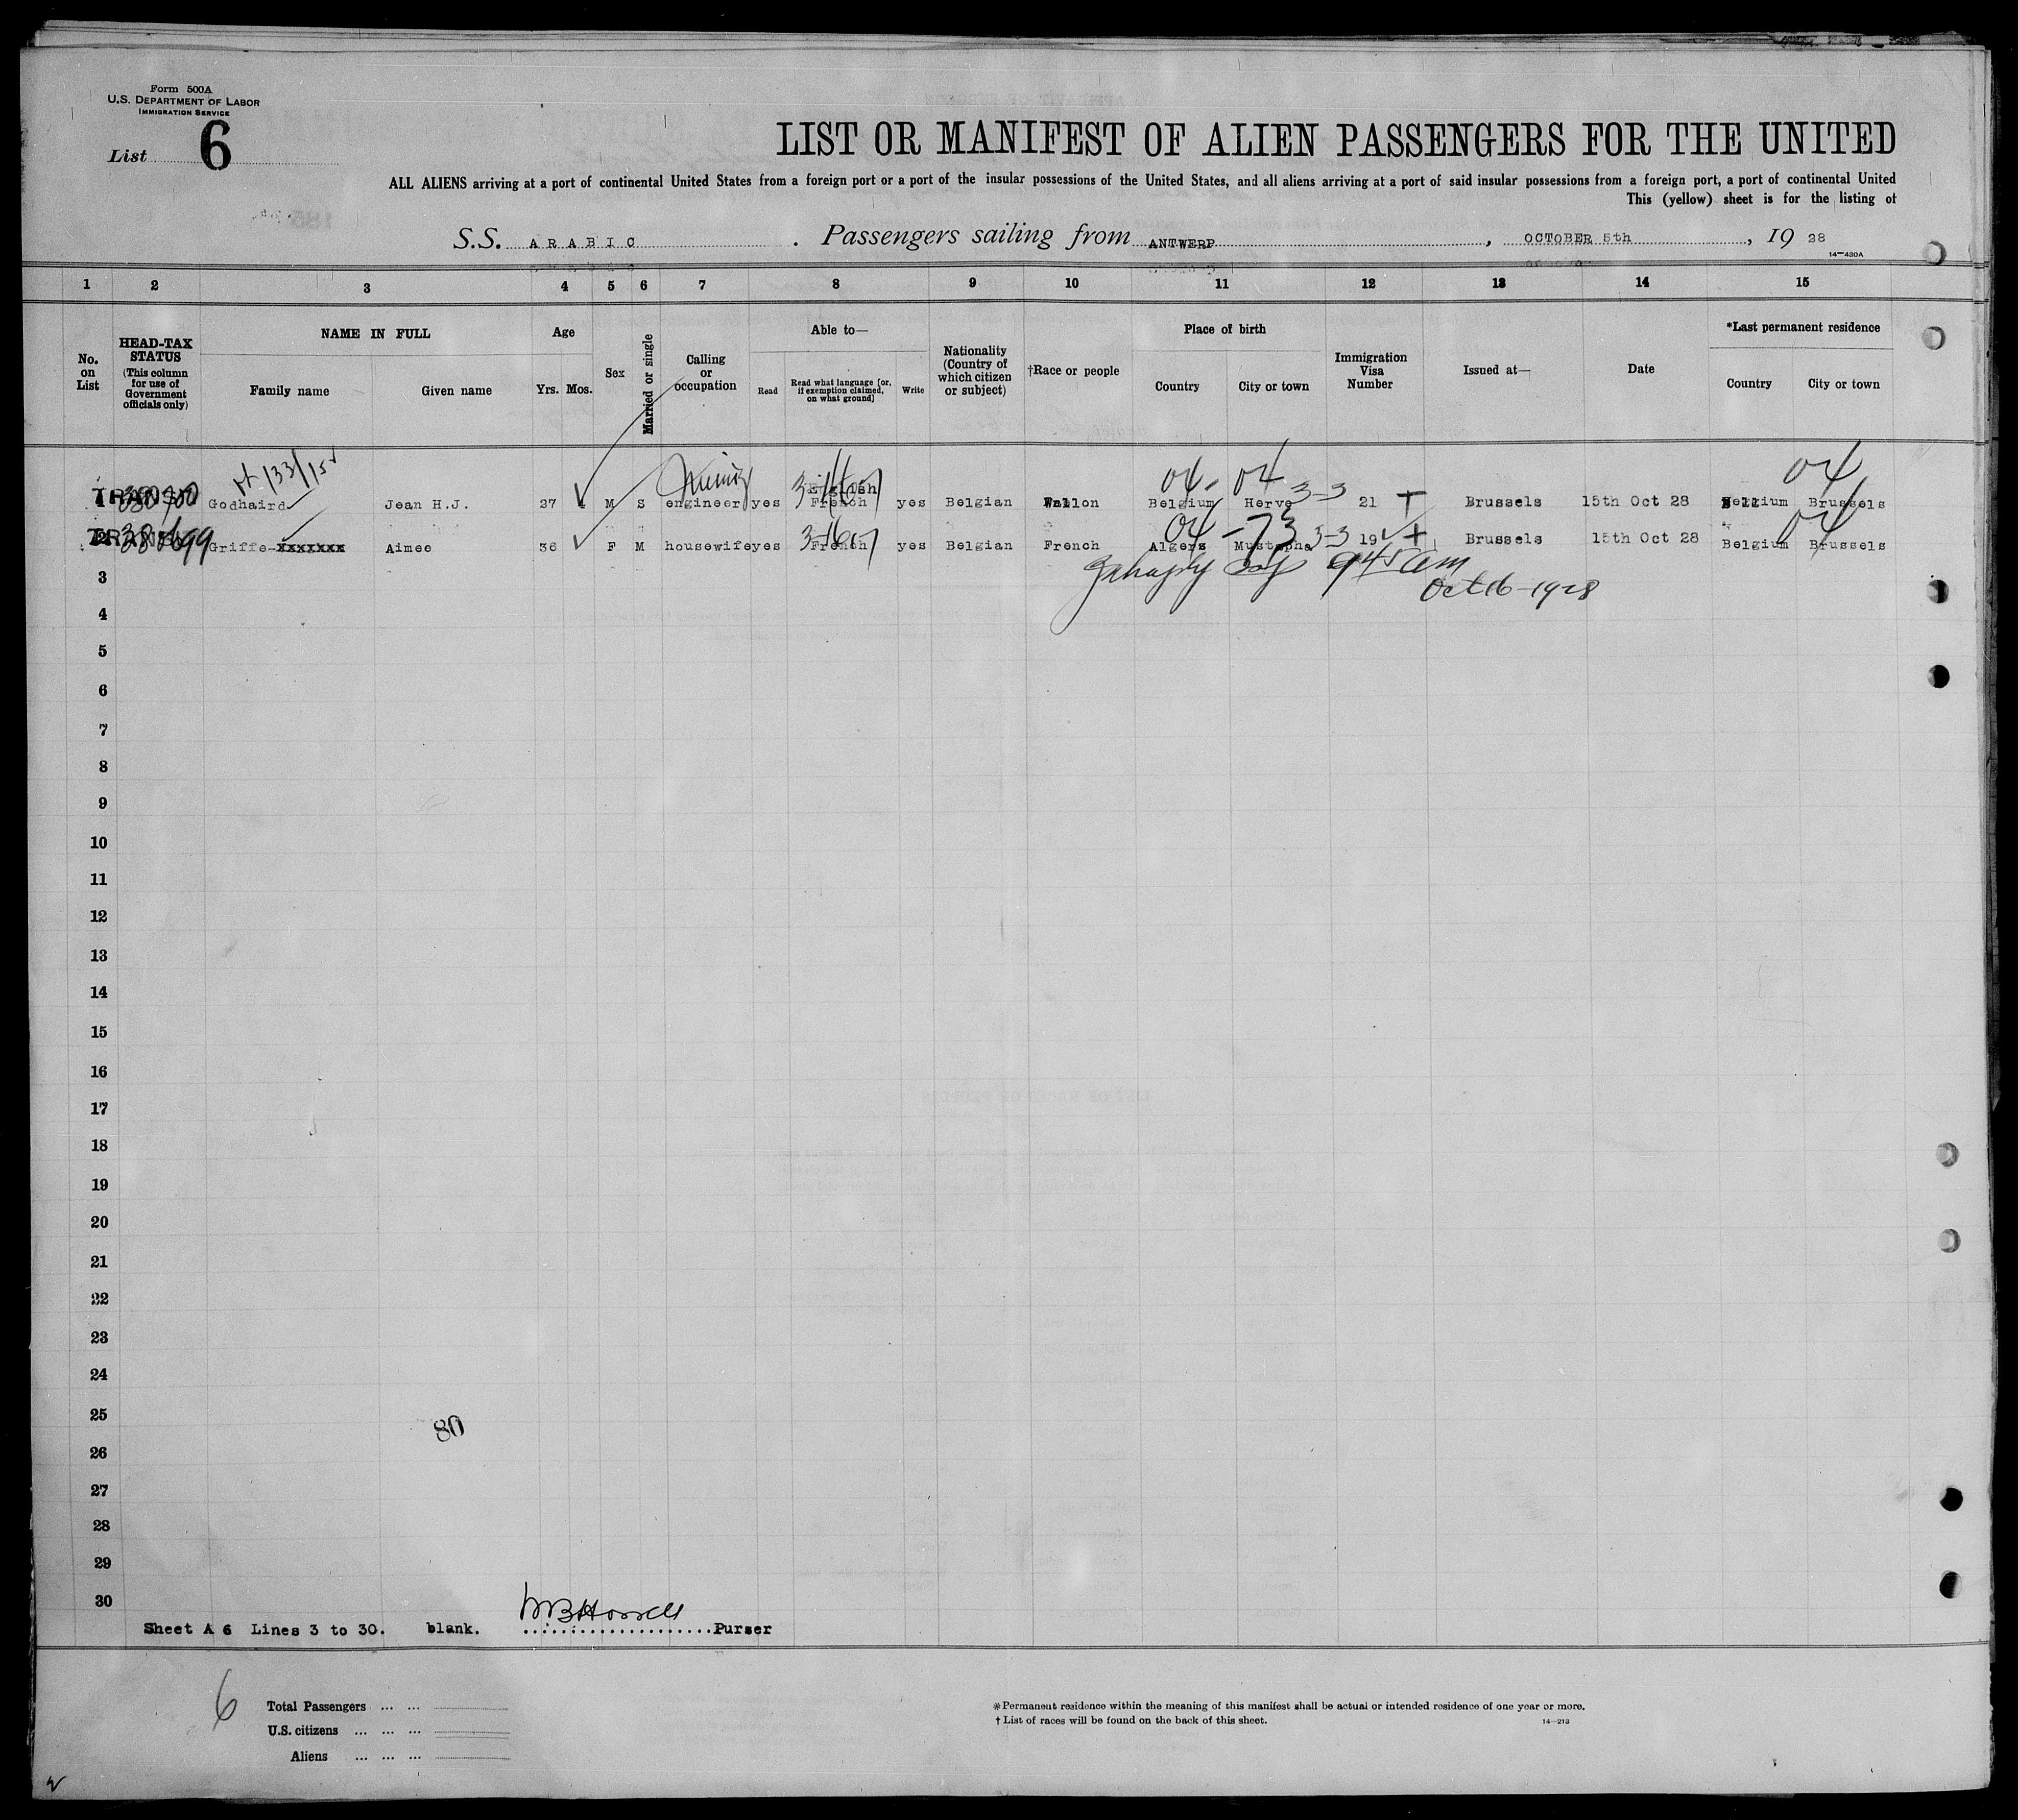 Form 500A
U.S. DEPARTMENT OF LABOR
IMMIGRATION SERVICE
List 6
LIST OR MANIFEST OF ALIEN PASSENGERS FOR THE UNITED
ALL ALIENS arriving at a port of continental United States from a foreign port or a port of the insular possessions of the United States, and all aliens arriving at a port of said insular possessions from a foreign port, a port of continental United
This (yellow) sheet is for the listing of
S.S. ARABIC. Passengers sailing from ANTWERP, OCTOBER 5th, 19 28
14—430A
1 2 3 4 5 6 7 8 9 10 11 12 13 14 15
No. on List
HEAD-TAX STATUS (This column for use of Government officials only)
NAME IN FULL
Family name Given name
Age
Yrs. Mos.
Sex
Married or single
Calling or occupation
Able to—
Read
Read what language [or, if exemption claimed, on what ground]
Write
Nationality (Country of which citizen or subject)
†Race or people
Place of birth
Country City or town
Immigration Visa Number
Issued at—
Date
*Last permanent residence
Country City or town
133/15
04 - 04 04
English
1 TRANS Godhaird Jean H.J. 27 M S engineer yes French yes Belgian Wallon Belgium Herve 3-3 21 Brussels 15th Oct 28 Belgium Brussels
04 - 73 04
2 TRANS Griffe-xxxxxxx Aimee 36 F M housewife yes French yes Belgian French Algers Mustapha 3-3 19 Brussels 15th Oct 28 Belgium Brussels
9 45 am
Oct 16-1928
3
4
5
6
7
8
9
10
11
12
13
14
15
16
17
18
19
20
21
22
23
24
25
80
26
27
28
29
30
Sheet A 6 Lines 3 to 30. blank. ....................Purser
6
Total Passengers ... ...
U.S. citizens ... ... ...
Aliens ... ... ...
*Permanent residence within the meaning of this manifest shall be actual or intended residence of one year or more.
† List of races will be found on the back of this sheet.
14—213